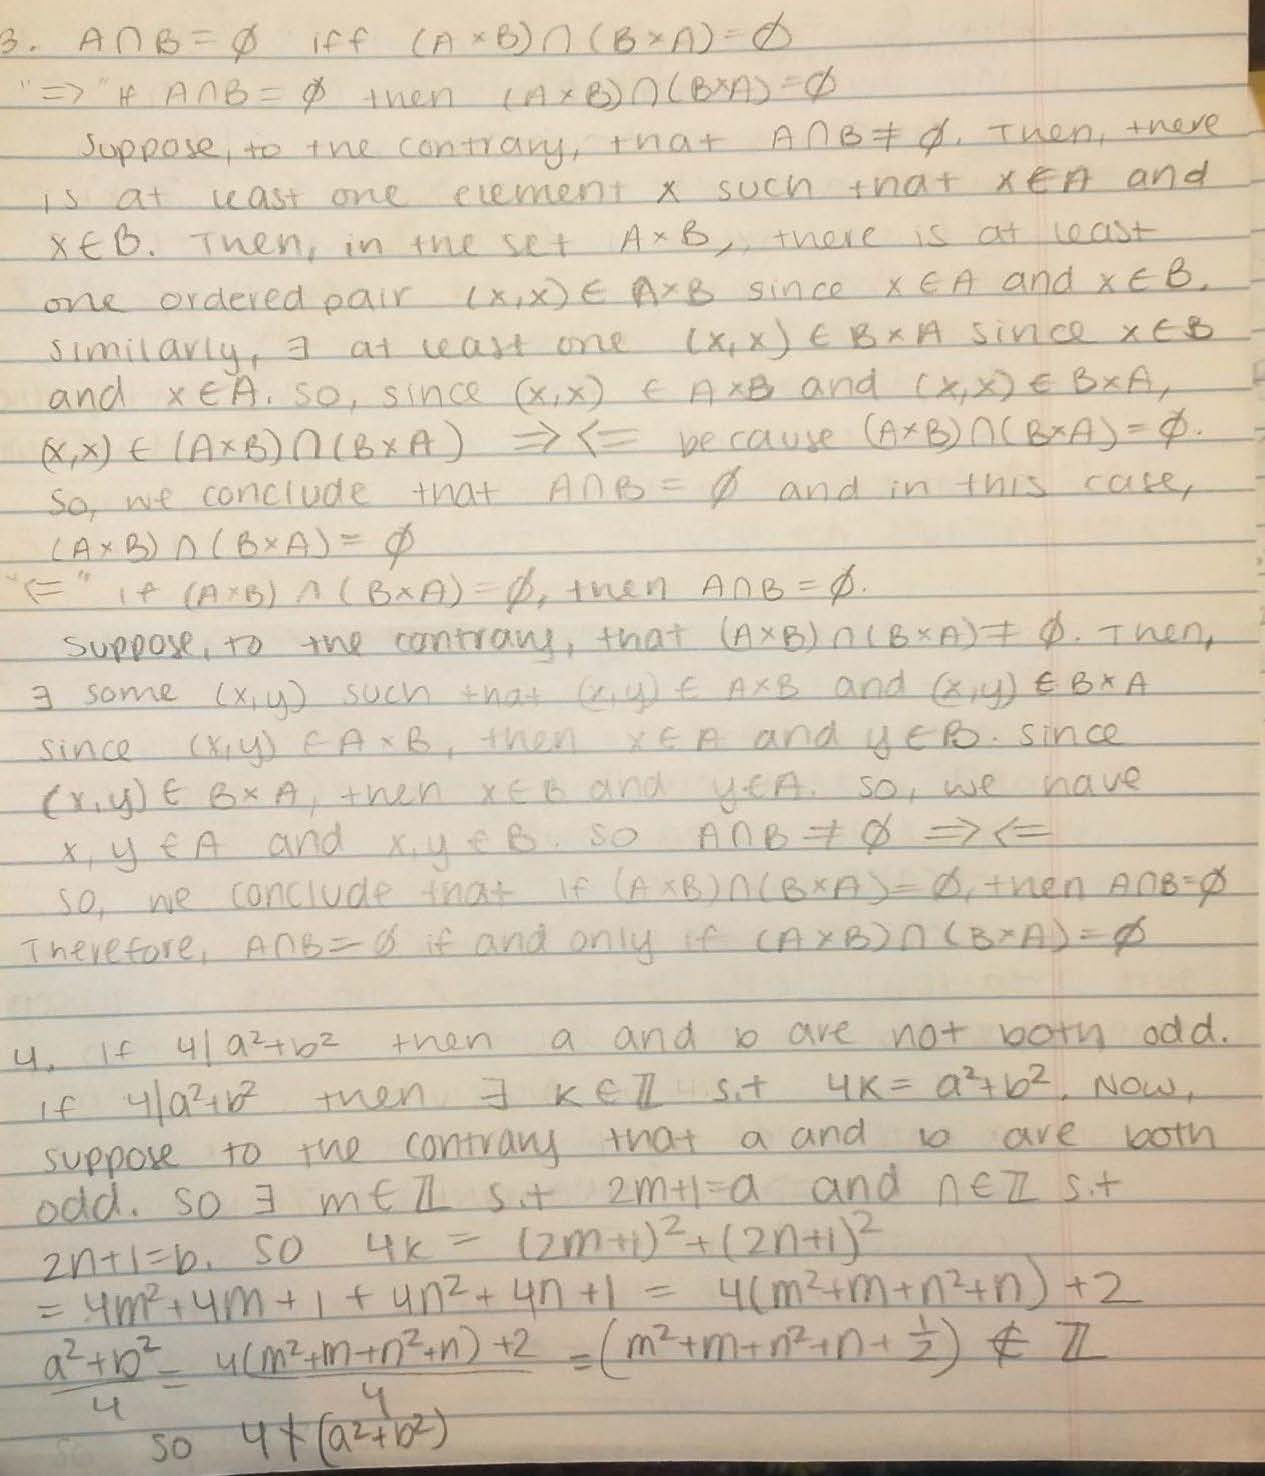 3. A∩B = ∅ iff (A×B)∩(B×A)=∅
"=>" If A∩B = ∅ then (A×B)∩(B×A)=∅
Suppose, to the contrary, that A∩B ≠ ∅. Then, there
is at least one element x such that x∈A and
x∈B. Then, in the set A×B, there is at least
one ordered pair (x,x)∈ A×B since x∈A and x∈B.
Similarly, ∃ at least one (x,x)∈B×A since x∈B
and x∈A. So, since (x,x) ∈ A×B and (x,x)∈B×A,
(x,x) ∈ (A×B)∩(B×A) =><= because (A×B)∩(B×A)=∅.
So, we conclude that A∩B = ∅ and in this case,
(A×B)∩(B×A)=∅
"<=" if (A×B)∩(B×A)=∅, then A∩B=∅.
Suppose, to the contrary, that (A×B)∩(B×A)≠∅. Then,
∃ some (x,y) such that (x,y)∈ A×B and (x,y)∈B×A
since (x,y)∈A×B, then x∈A and y∈B. Since
(x,y)∈ B×A, then x∈B and y∈A. So, we have
x,y∈A and x,y∈B. So A∩B ≠ ∅ =><=
So, we conclude that if (A×B)∩(B×A)=∅, then A∩B=∅
Therefore, A∩B=∅ if and only if (A×B)∩(B×A)=∅
4. If 4|a²+b² then a and b are not both odd.
If 4|a²+b² then ∃ k∈ℤ s.t 4k = a²+b². Now,
suppose to the contrary that a and b are both
odd. So ∃ m∈ℤ s.t 2m+1=a and n∈ℤ s.t
2n+1=b. So 4k = (2m+1)²+(2n+1)²
= 4m²+4m+1+4n²+4n+1 = 4(m²+m+n²+n)+2
(a²+b²)/4 = (4(m²+m+n²+n)+2)/4 = (m²+m+n²+n+1/2) ∉ ℤ
so 4∤(a²+b²)